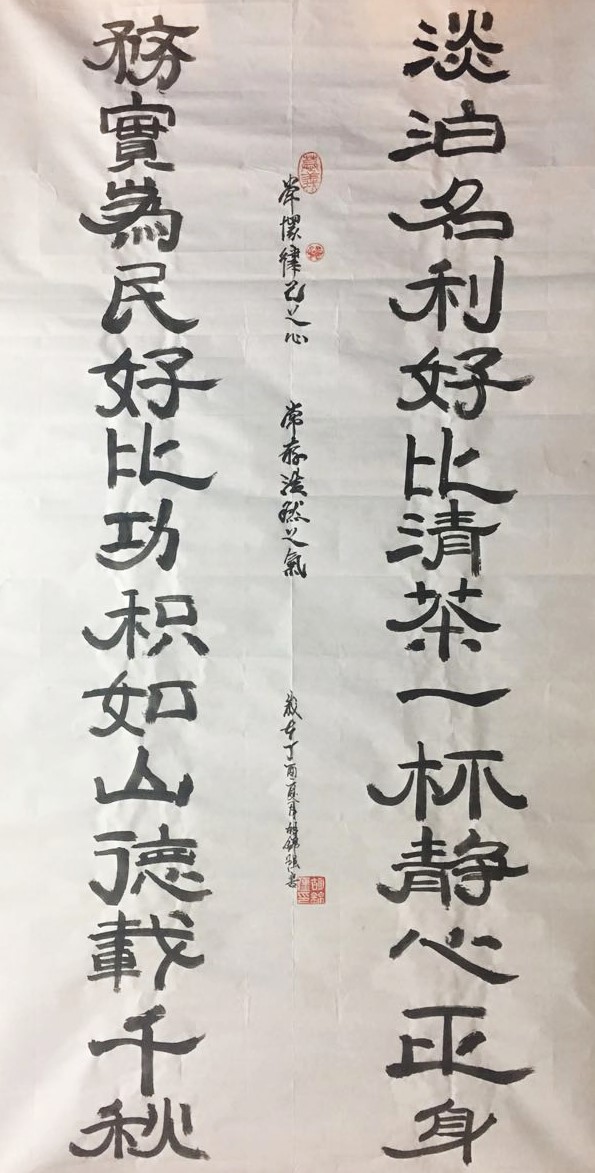 淡泊名利好比清茶一杯静心正身
務實為民好比功积如山德載千秋
常懷律己之心
常存浩然之氣
歲在丁酉夏月